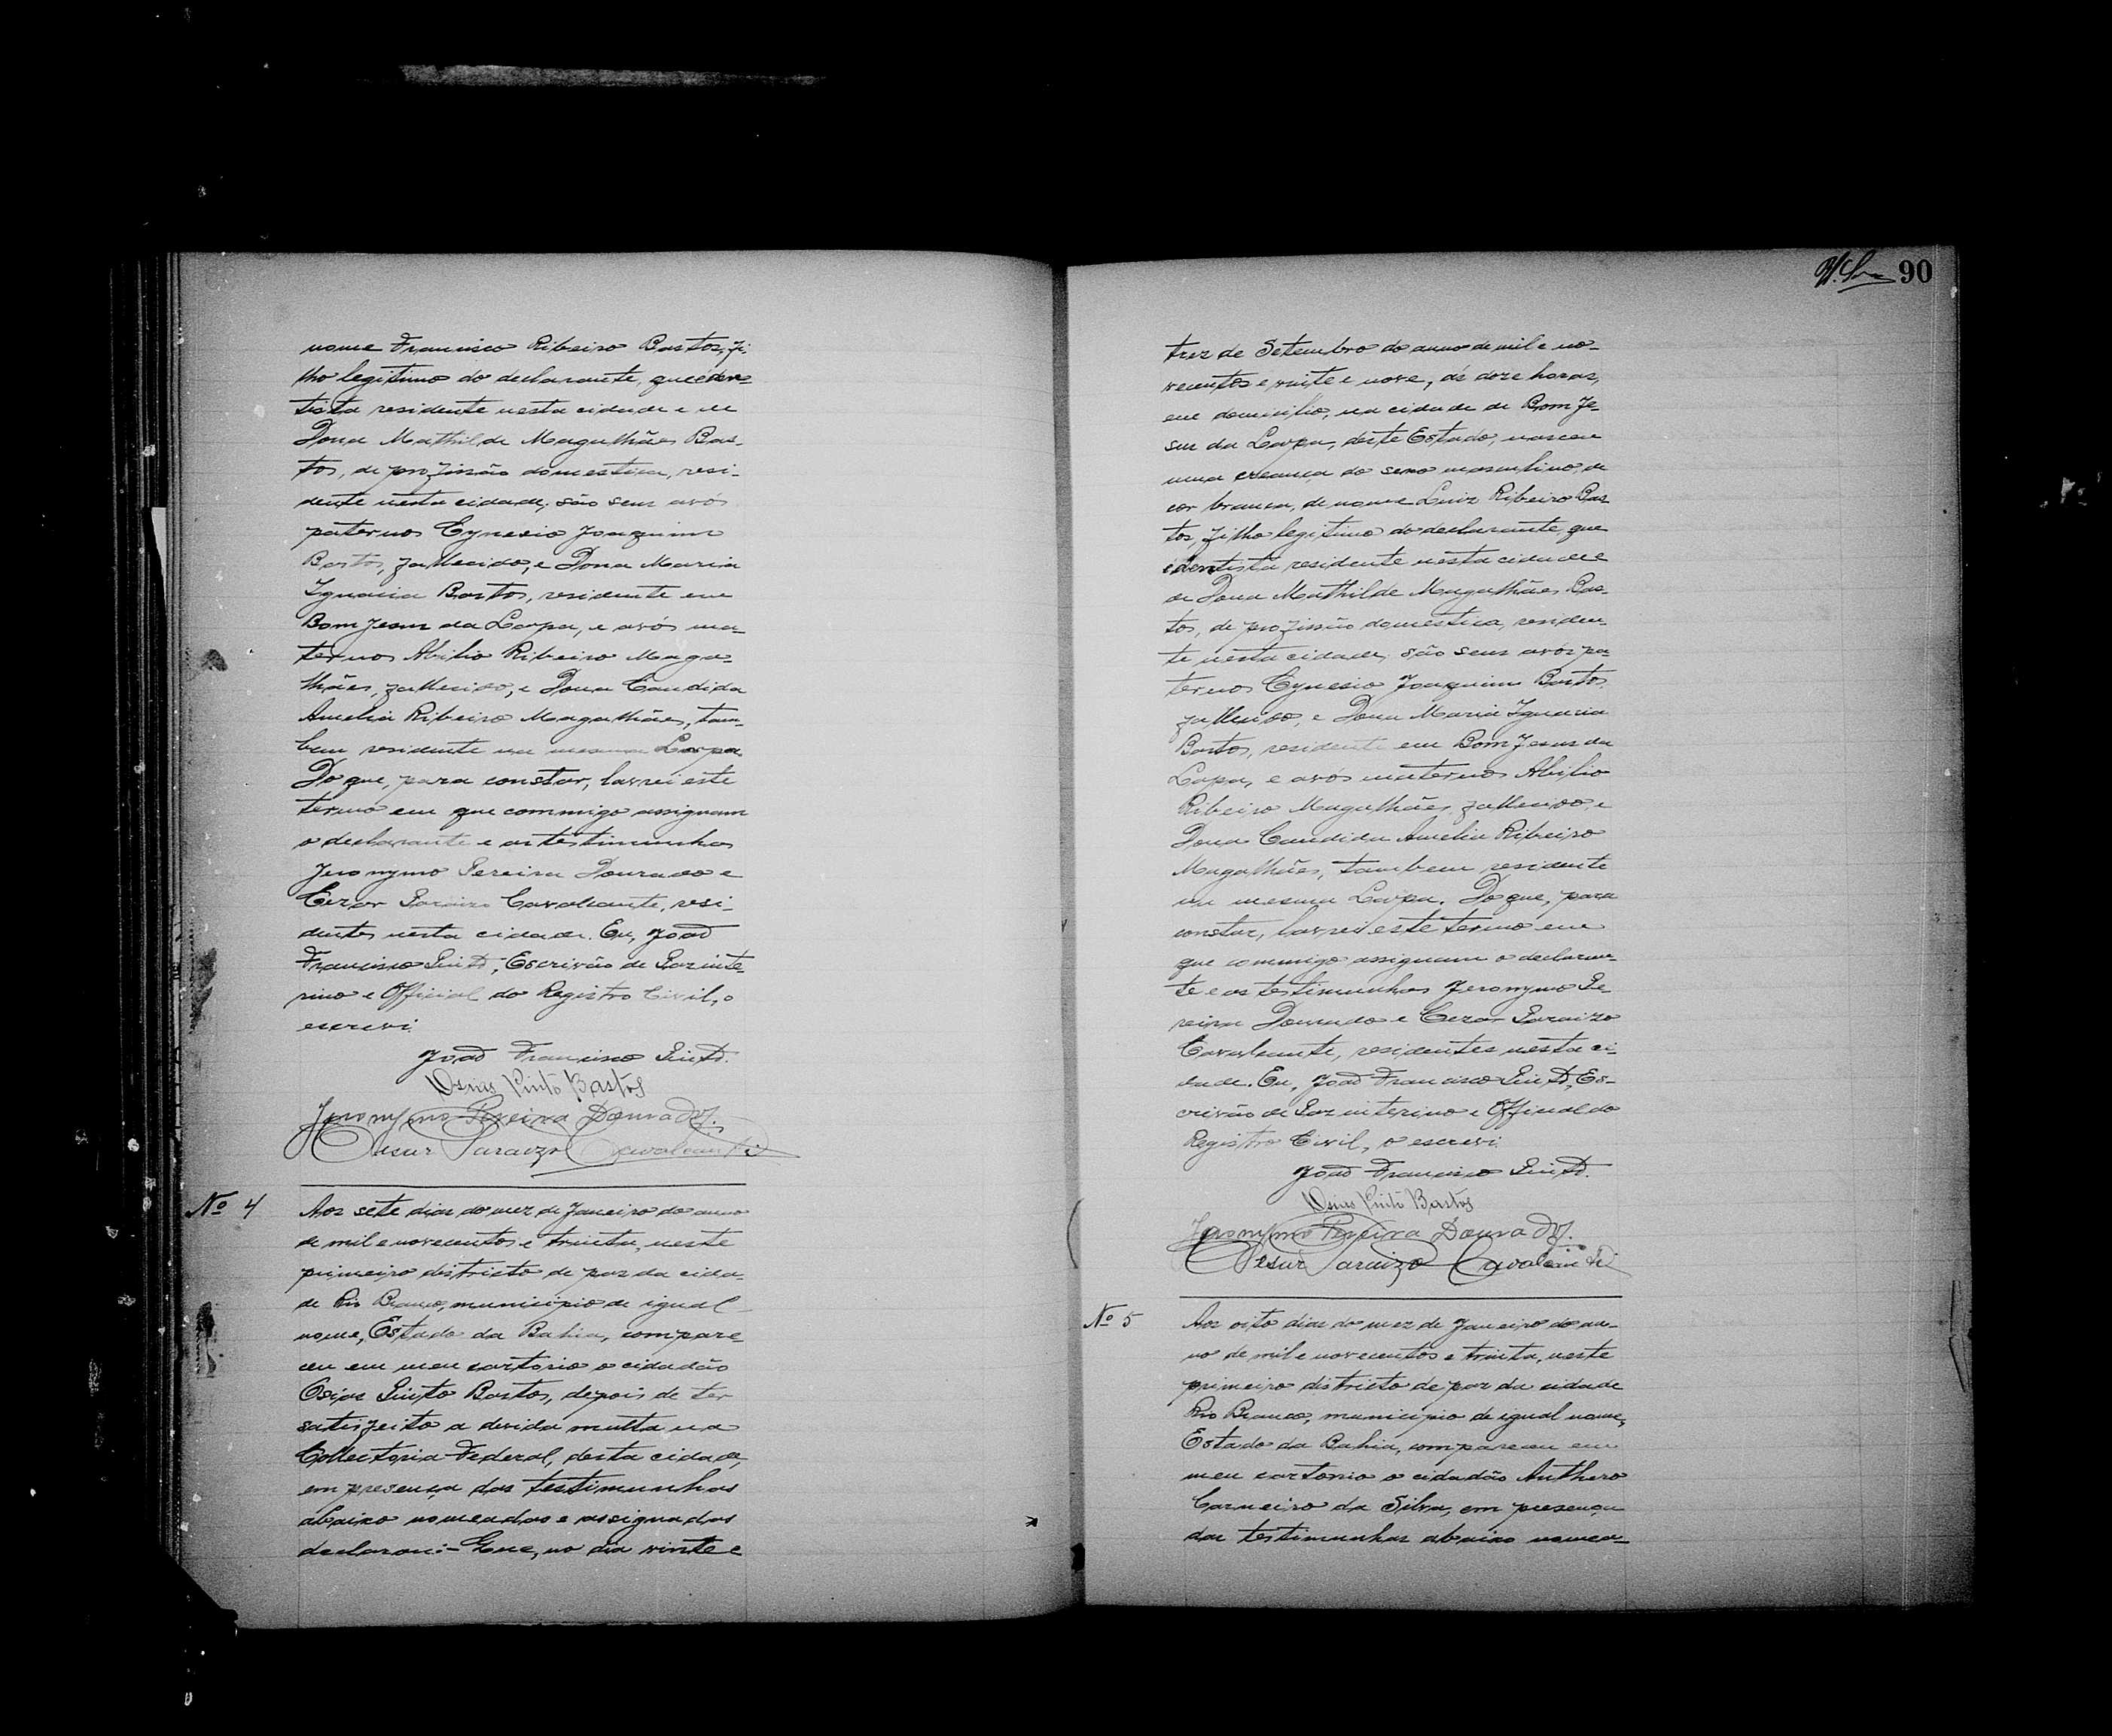 nome Francisco Ribeiro Bastos, fi-
lho legitimo do declarante, que é den-
tista residente nesta cidade e de
Dona Mathilde Magalhães Bas-
tos, de profissão domestica, resi-
dente nesta cidade; são seus avós
paternos Cynesio Joaquim
Bastos, fallecido, e Dona Maria
Ignacia Bastos, residente em
Bom Jesus da Lapa, e avós ma-
ternos Abilio Ribeiro Maga-
lhães, fallecido, e Dona Candida
Amelia Ribeiro Magalhães, tam-
bem residente na mesma Lapa.
Do que, para constar, lavrei este
termo em que commigo assignam
o declarante e as testimunhas
Jeronymo Pereira Dourado e
Cezar Paraizo Cavalcante, resi-
dentes nesta cidade. Eu, João
Francisco Pinto, Escrivão de Paz inte-
rino e Official do Registro Civil, o
escrevi.
João Francisco Pinto.
Osias Pinto Bastos
Jeronymo Pereira Dourado.
Cesar Paraizo Cavalcanti
Nº 4
Aos sete dias do mez de Janeiro do anno
de mil e novecentos e trinta, neste
primeiro districto de paz da cida-
de Rio Branco, municipio de igual
nome, Estado da Bahia, compare-
ceu em meu cartorio o cidadão
Osias Pinto Bastos, depois de ter
satisfeito a devida multa na
Collectoria Federal, desta cidade,
em presença das testimunhas
abaixo nomeadas e assignadas
declarou:- Que, no dia vinte e
90
trez de Setembro do anno de mil e no-
vecentos e vinte e nove, ás doze horas,
em domicilio, na cidade de Bom Je-
sus da Lapa, deste Estado, nasceu
uma creança do sexo masculino, de
cor branca, de nome Luiz Ribeiro Bas-
tos, filho legitimo do declarante, que
é dentista residente nesta cidade e
de Dona Mathilde Magalhães Bas-
tos, de profissão domestica, residen-
te nesta cidade; são seus avós pa-
ternos Cynesio Joaquim Bastos,
fallecido, e Dona Maria Ignacia
Bastos, residente em Bom Jesus da
Lapa, e avós maternos Abilio
Ribeiro Magalhães, fallecido e
Dona Candida Amelia Ribeiro
Magalhães, tambem residente
na mesma Lapa. Do que, para
constar, lavrei este termo em
que commigo assignam o declaran-
te e as testimunhas Jeronymo Pe-
reira Dourado e Cezar Paraizo
Cavalcante, residentes nesta ci-
dade. Eu, João Francisco Pinto, Es-
crivão de Paz interino e Official do
Registro Civil, o escrevi.
João Francisco Pinto.
Osias Pinto Bastos
Jeronymo Pereira Dourado.
Cesar Paraizo Cavalcanti
Nº 5
Aos oito dias do mez de Janeiro do an-
no de mil e novecentos e trinta, neste
primeiro districto de paz da cidade
Rio Branco, municipio de igual nome,
Estado da Bahia, compareceu em
meu cartorio o cidadão Anthero
Carneiro da Silva, em presença
das testimunhas abaixo nomea-